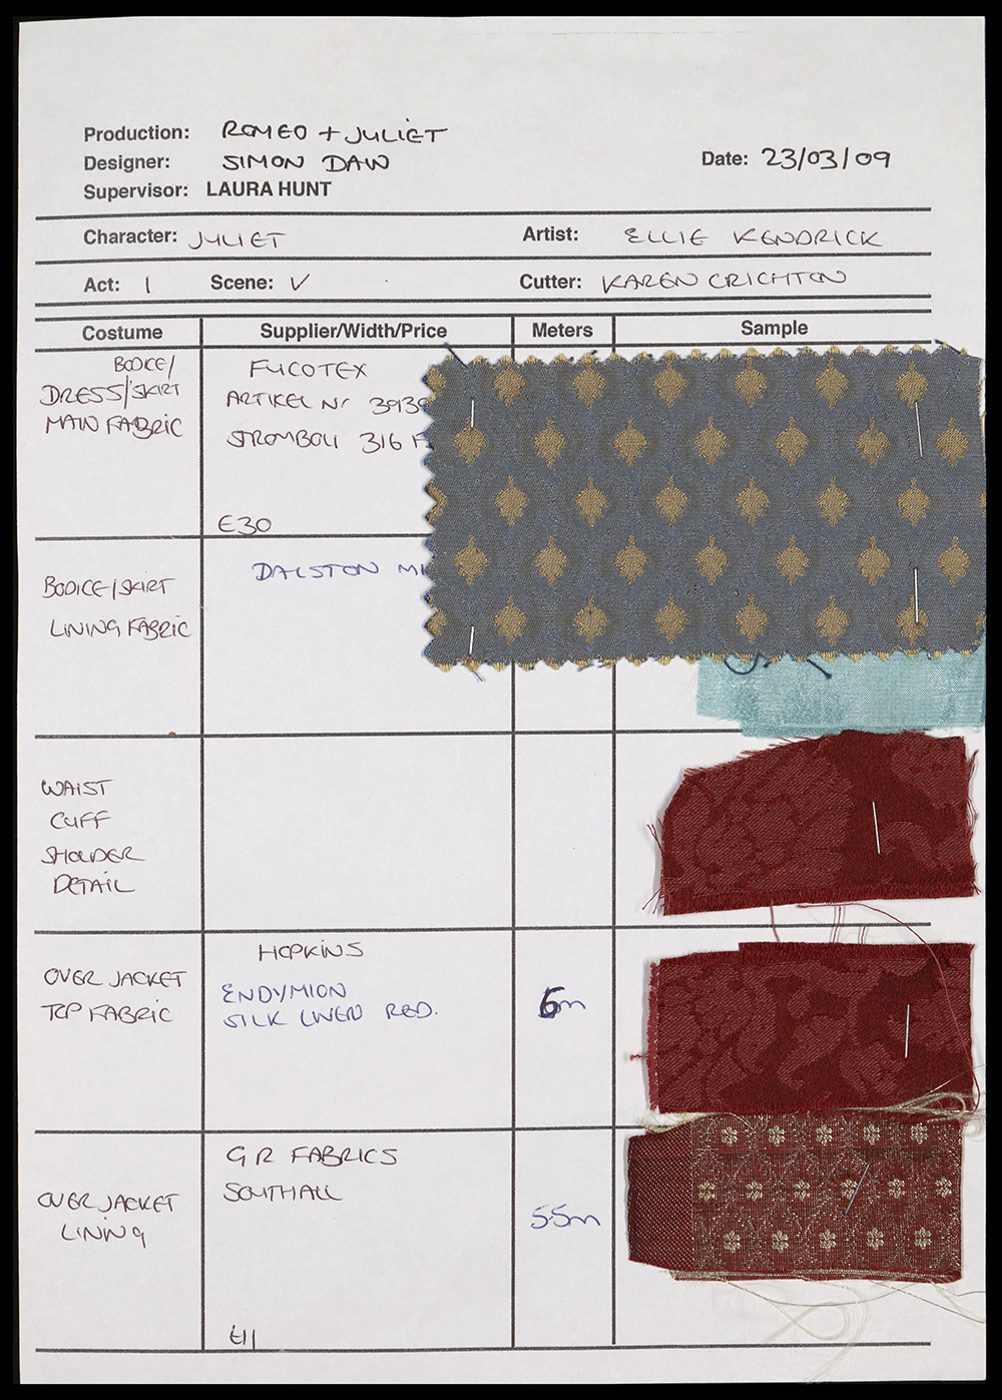 Production: ROMEO + JULIET
Designer: SIMON DAW
Date: 23/03/09
Supervisor: LAURA HUNT
Character: JULIET Artist: ELLIE KENDRICK
Act: 1 Scene: V Cutter: KAREN CRICHTON
Costume Supplier/Width/Price Meters Sample
BODICE/
DRESS/SKIRT
MAIN FABRIC
FUCOTEX
ARTIKEL Nr 3939
STROMBOLI 316
£30
BODICE/SKIRT
LINING FABRIC
DALSTON
WAIST
CUFF
SHOLDER
DETAIL
OVER JACKET
TOP FABRIC
HOPKINS
ENDYMION
SILK LINEN RED.
6m
OVER JACKET
LINING
GR FABRICS
SOUTHALL
£11
5.5m